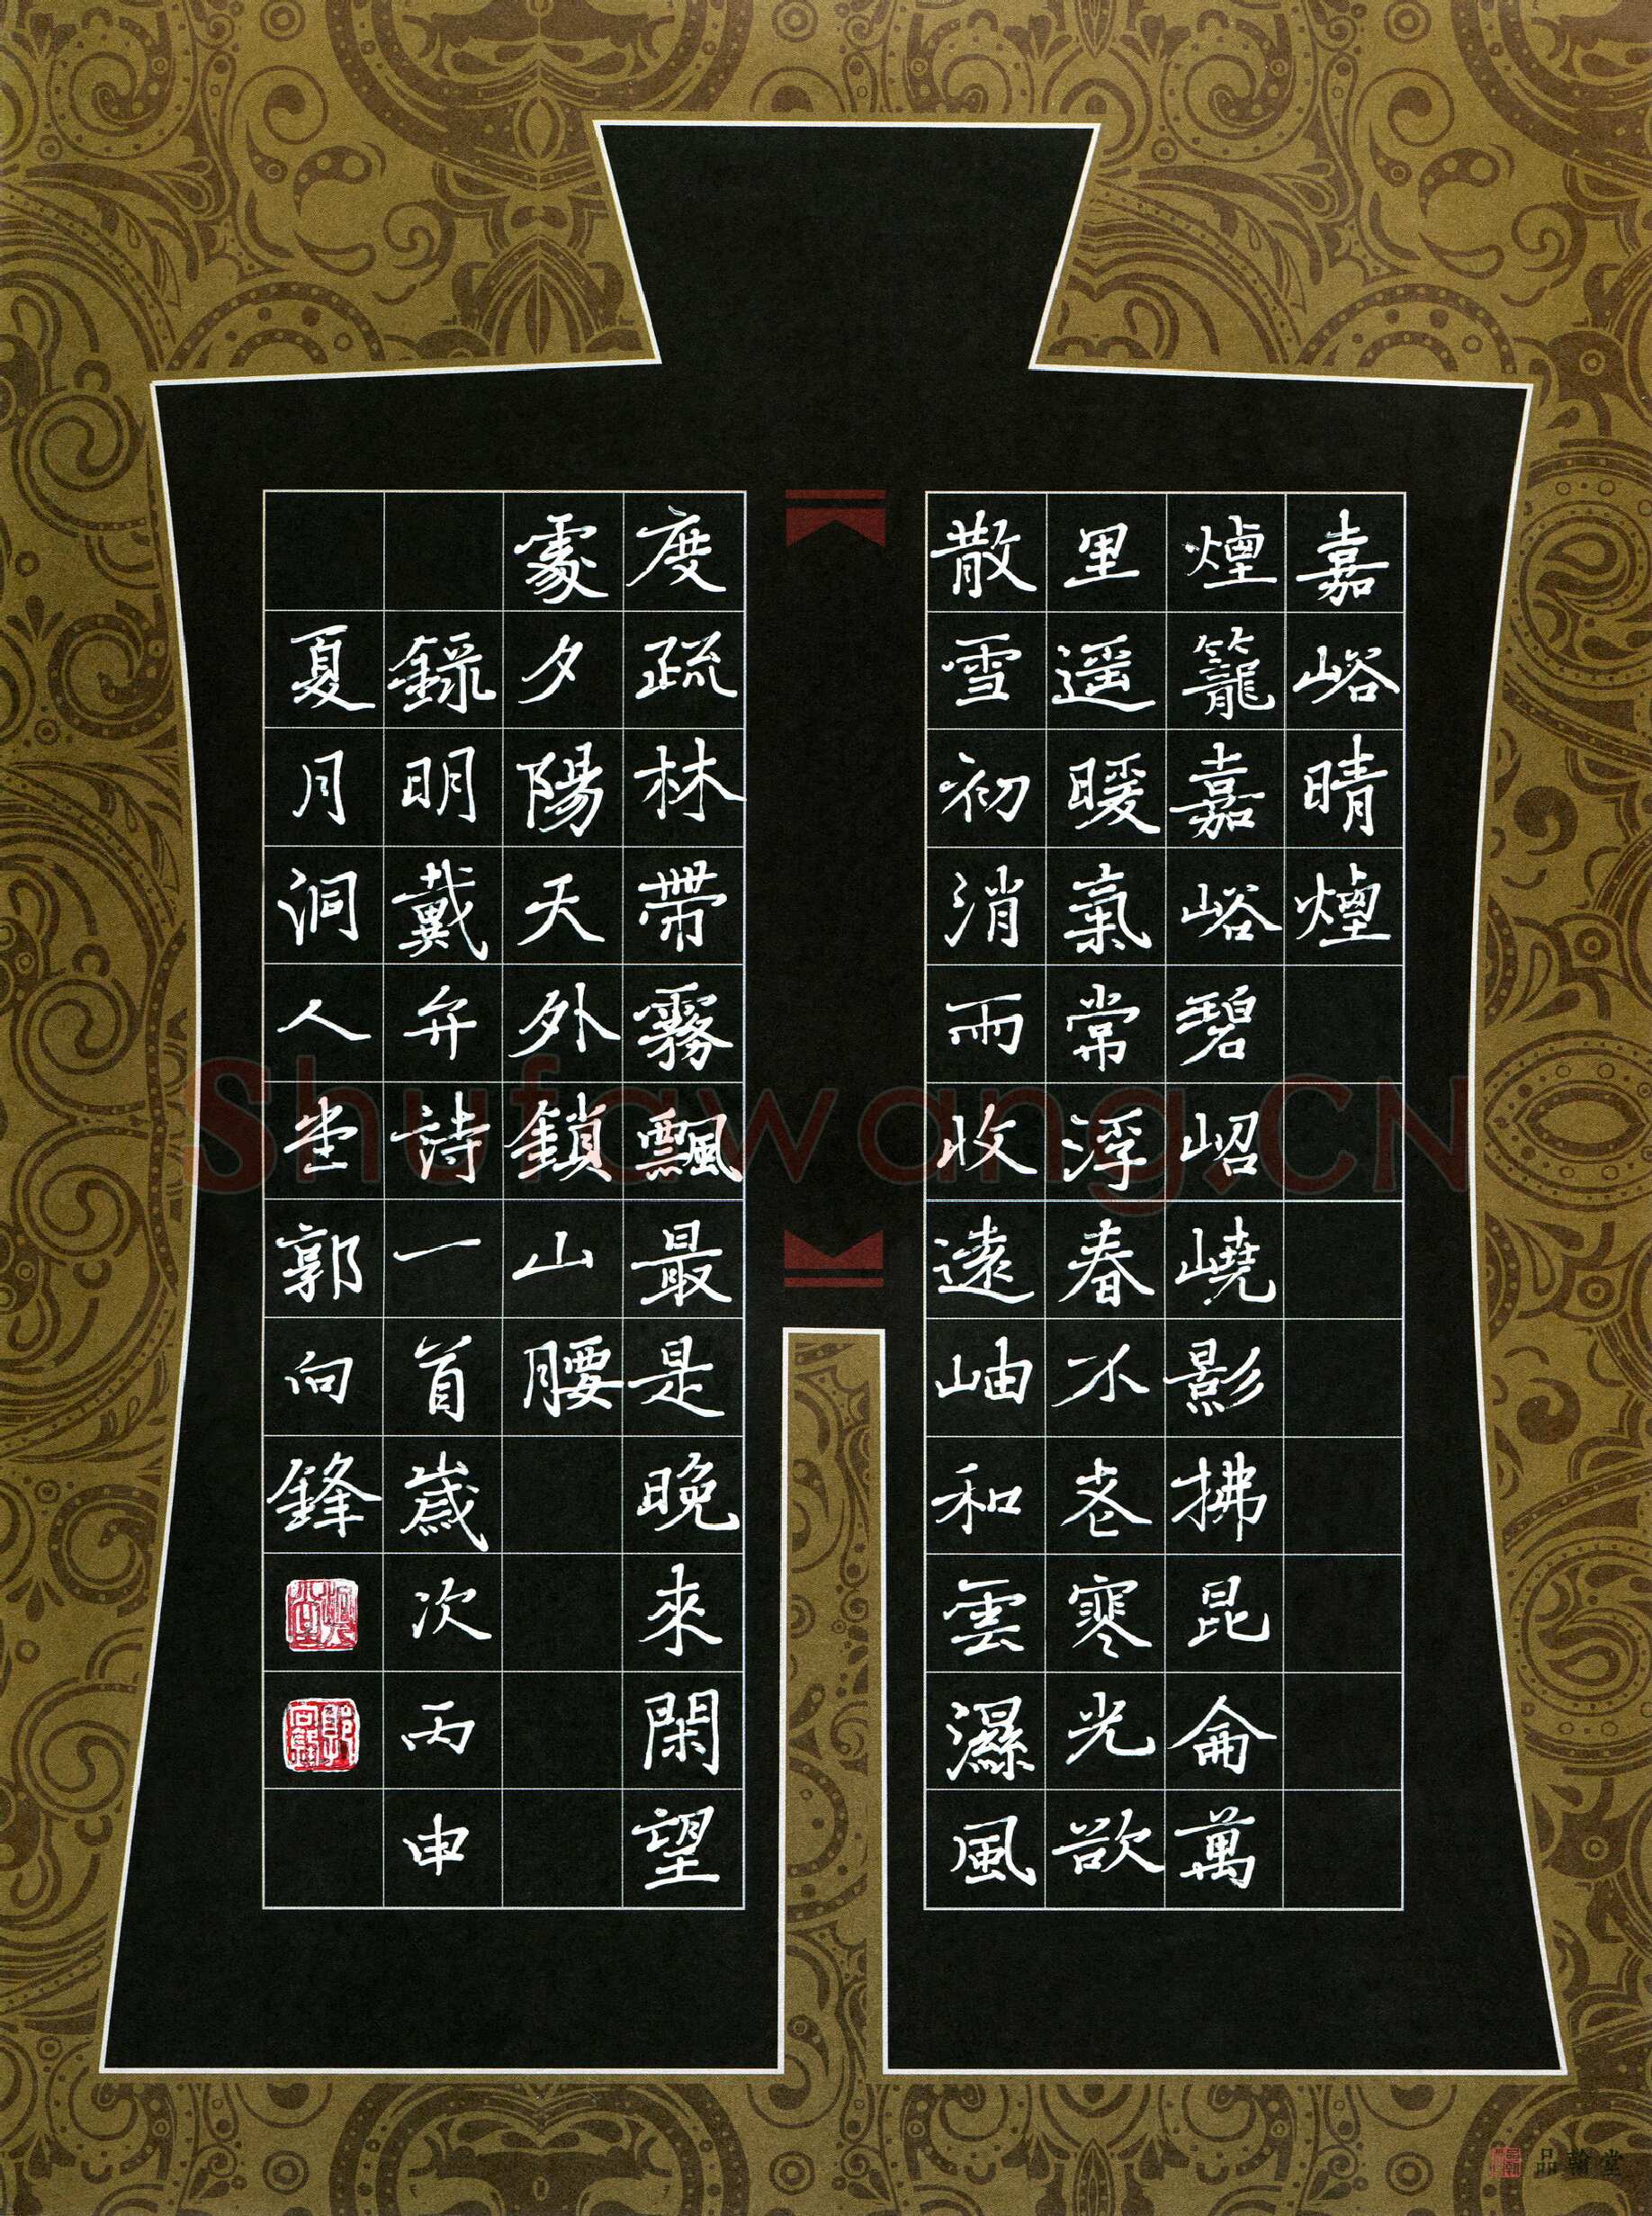 嘉峪晴煙
煙籠嘉峪碧岧嶢影拂昆侖萬
里遥暖氣常浮春不老寒光欲
散雪初消雨收遠岫和雲濕風
度疏林帶霧飄最是晚來閑望
處夕陽天外鎖山腰
錄明戴弁詩一首歲次丙申
夏月洞人堂郭向鋒
品翰堂
Shufawang.CN